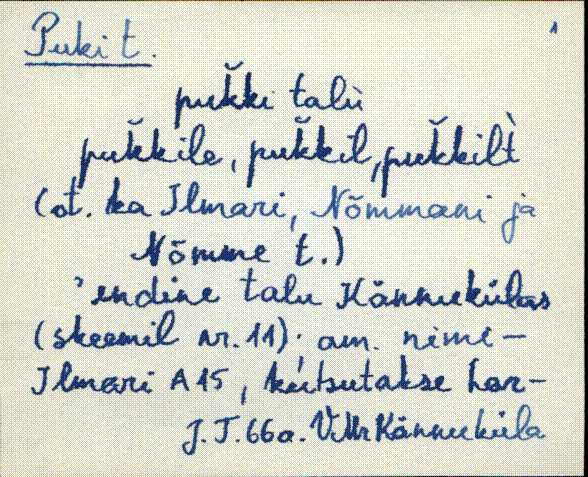 Puki t. 1
puk̆ki talù
puk̆kile, puk̆kil, puk̆kilt̀
(vt. ka Ilmari, Nõmmani ja
Nõmme t.)
'endine talu Kännukülas
(skeemil nr. 11). am. nimi -
Ilmari A15, kutsutakse har-
J.T. 66a. VMr Kännuküla